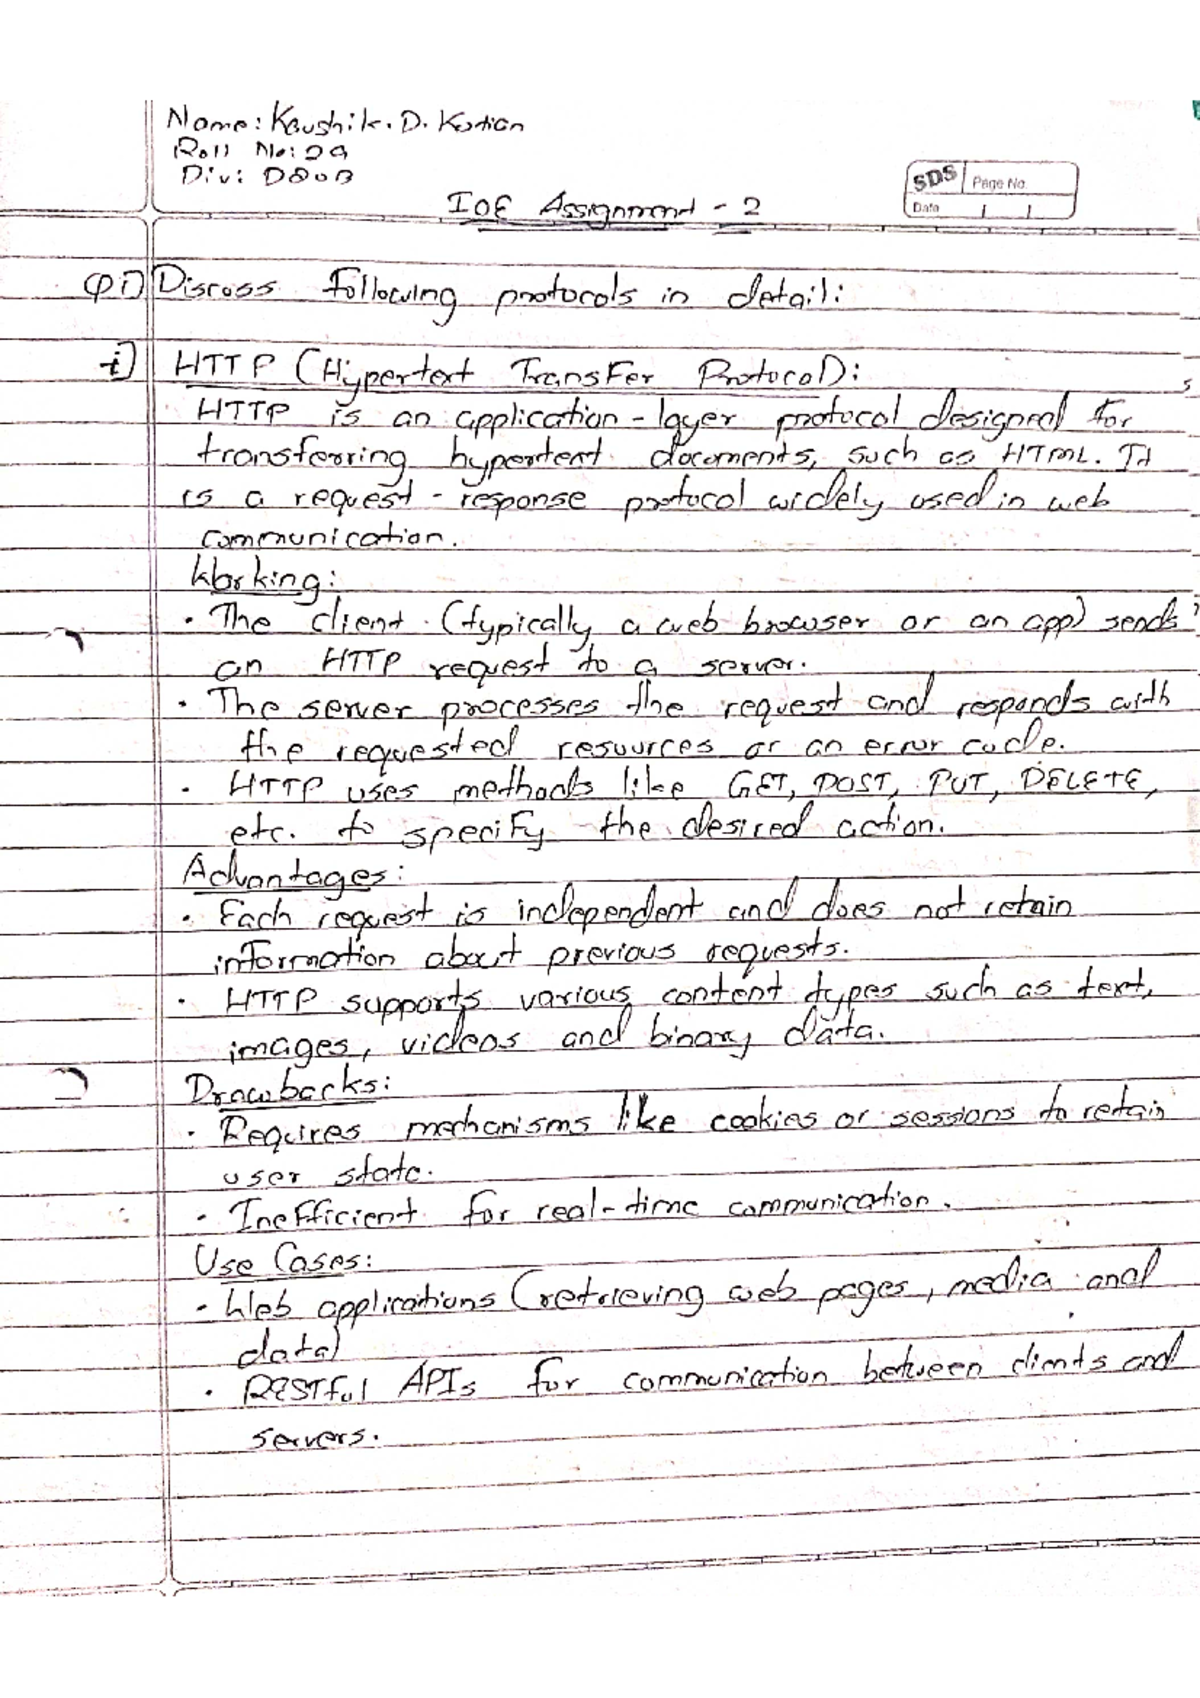 Name: Kaushik. D. Kotian
Roll No: 29
Div:
SDS Page No.
Date
IOE Assignment - 2
Q1) Discuss following protocols in detail:
i) HTTP (Hypertext Transfer Protocol):
HTTP is an application-layer protocol designed for
transferring hypertext documents, such as HTML. It
is a request-response protocol widely used in web
communication.
Working:
• The client (typically a web browser or an app) sends
an HTTP request to a server.
• The server processes the request and responds with
the requested resources or an error code.
• HTTP uses methods like GET, POST, PUT, DELETE,
etc. to specify the desired action.
Advantages:
• Each request is independent and does not retain
information about previous requests.
• HTTP supports various content types such as text,
images, videos and binary data.
Drawbacks:
• Requires mechanisms like cookies or sessions to retain
user state.
• Inefficient for real-time communication.
Use Cases:
• Web applications (retrieving web pages, media and
data)
• RESTful APIs for communication between clients and
servers.